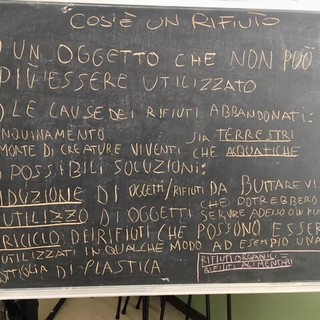 COS'È UN RIFIUTO
) UN OGGETTO CHE NON PUÒ
PIÙ ESSERE UTILIZZATO
) LE CAUSE DEI RIFIUTI ABBANDONATI:
NQUINAMENTO
MORTE DI CREATURE VIVENTI SIA TERRESTRI
CHE AQUATICHE
) POSSIBILI SOLUZIONI:
IDUZIONE DI OGGETTI/RIFIUTI DA BUTTARE VI
UTILIZZO DI OGGETTI CHE POTREBBERO
SERVIRE ADESSO O IN FU
RICICLO DEI RIFIUTI CHE POSSONO ESSER
UTILIZZATI IN QUALCHE MODO AD ESEMPIO UNA
OTTIGLIA DI PLASTICA
RIFIUTI ORGANICI =
RIFIUTI ALIMENTARI